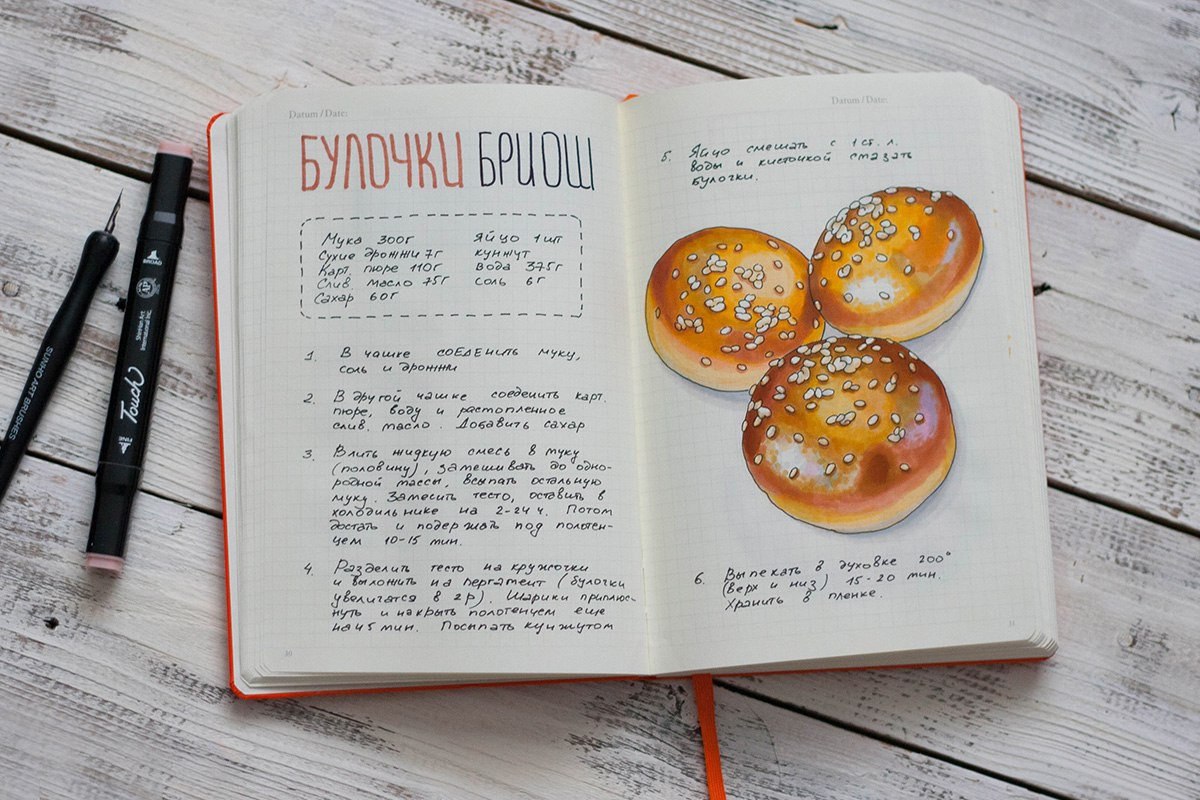 Datum/Date:
БУЛОЧКИ БРИОШ
Мука 300г
Сухие дрожжи 7г
Карт. пюре 110г
Слив. масло 75г
Сахар 60г
Яйцо 1шт
кунжут
Вода 375г
соль 6г
1. В чашке соеденить муку,
соль и дрожжи
2. В другой чашке соеденить карт.
пюре, воду и растопленное
слив. масло. Добавить сахар
3. Влить жидкую смесь в муку
(половину), замешивать до одно-
родной массы, всыпать остальную
муку. Замесить тесто, оставить в
холодильнике на 2-24 ч. Потом
достать и подержать под полотен-
цем 10-15 мин.
4. Разделить тесто на кружочки
и выложить на пергамент (булочки
увеличатся в 2р). Шарики приплюс-
нуть и накрыть полотенцем еще
на 45 мин. Посыпать кунжутом
30
Datum/Date:
5. Яйцо смешать с 1 ст. л.
воды и кисточкой смазать
булочки.
6. Выпекать в духовке 200°
(верх и низ) 15-20 мин.
Хранить в пленке.
31
SUNHO ART BRUSHES
BROAD
ShinHan Art
International Inc.
Touch
FINE